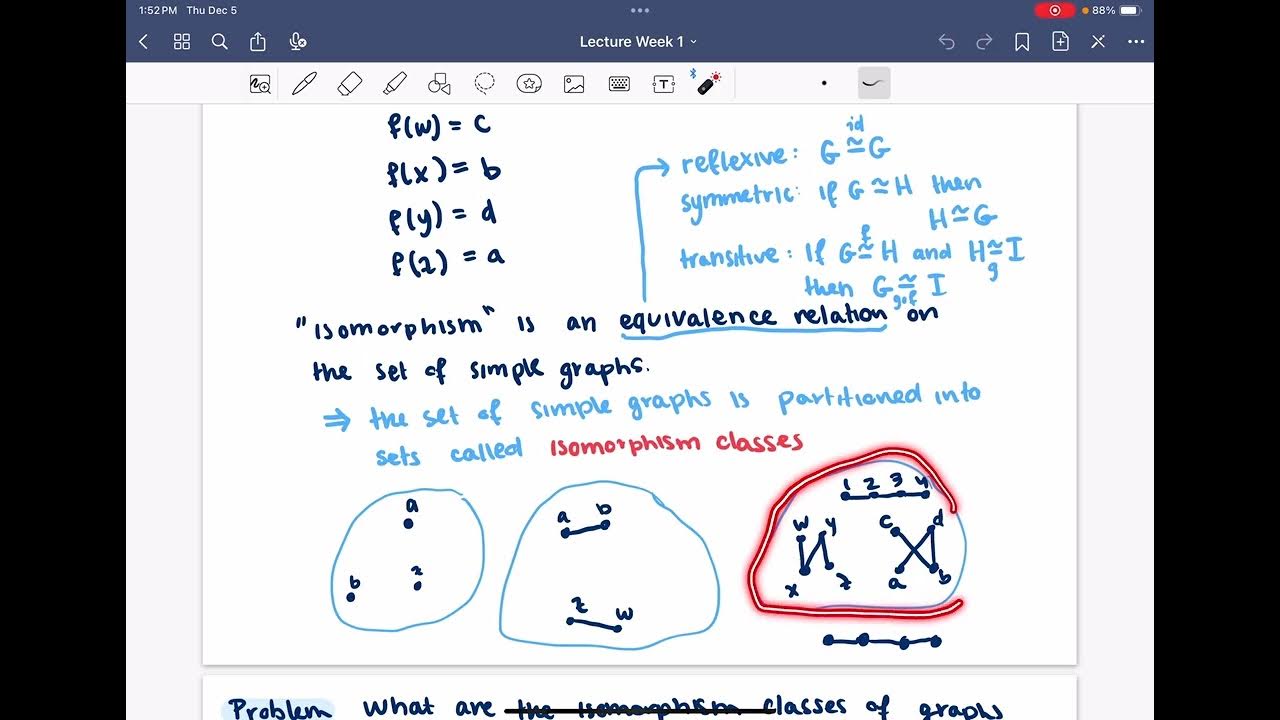 1:52 PM Thu Dec 5
88%
Lecture Week 1
f(w) = c
f(x) = b
f(y) = d
f(z) = a
id
reflexive: G ≅ G
symmetric: if G ≅ H then
H ≅ G
f
transitive: If G ≅ H and H ≅ I
g
then G ≅ I
g∘f
"isomorphism" is an equivalence relation on
the set of simple graphs.
⇒ the set of simple graphs is partitioned into
sets called isomorphism classes
a
b z
a b
z w
1 2 3 4
w y c d
x z a b
Problem What are the isomorphism classes of graphs